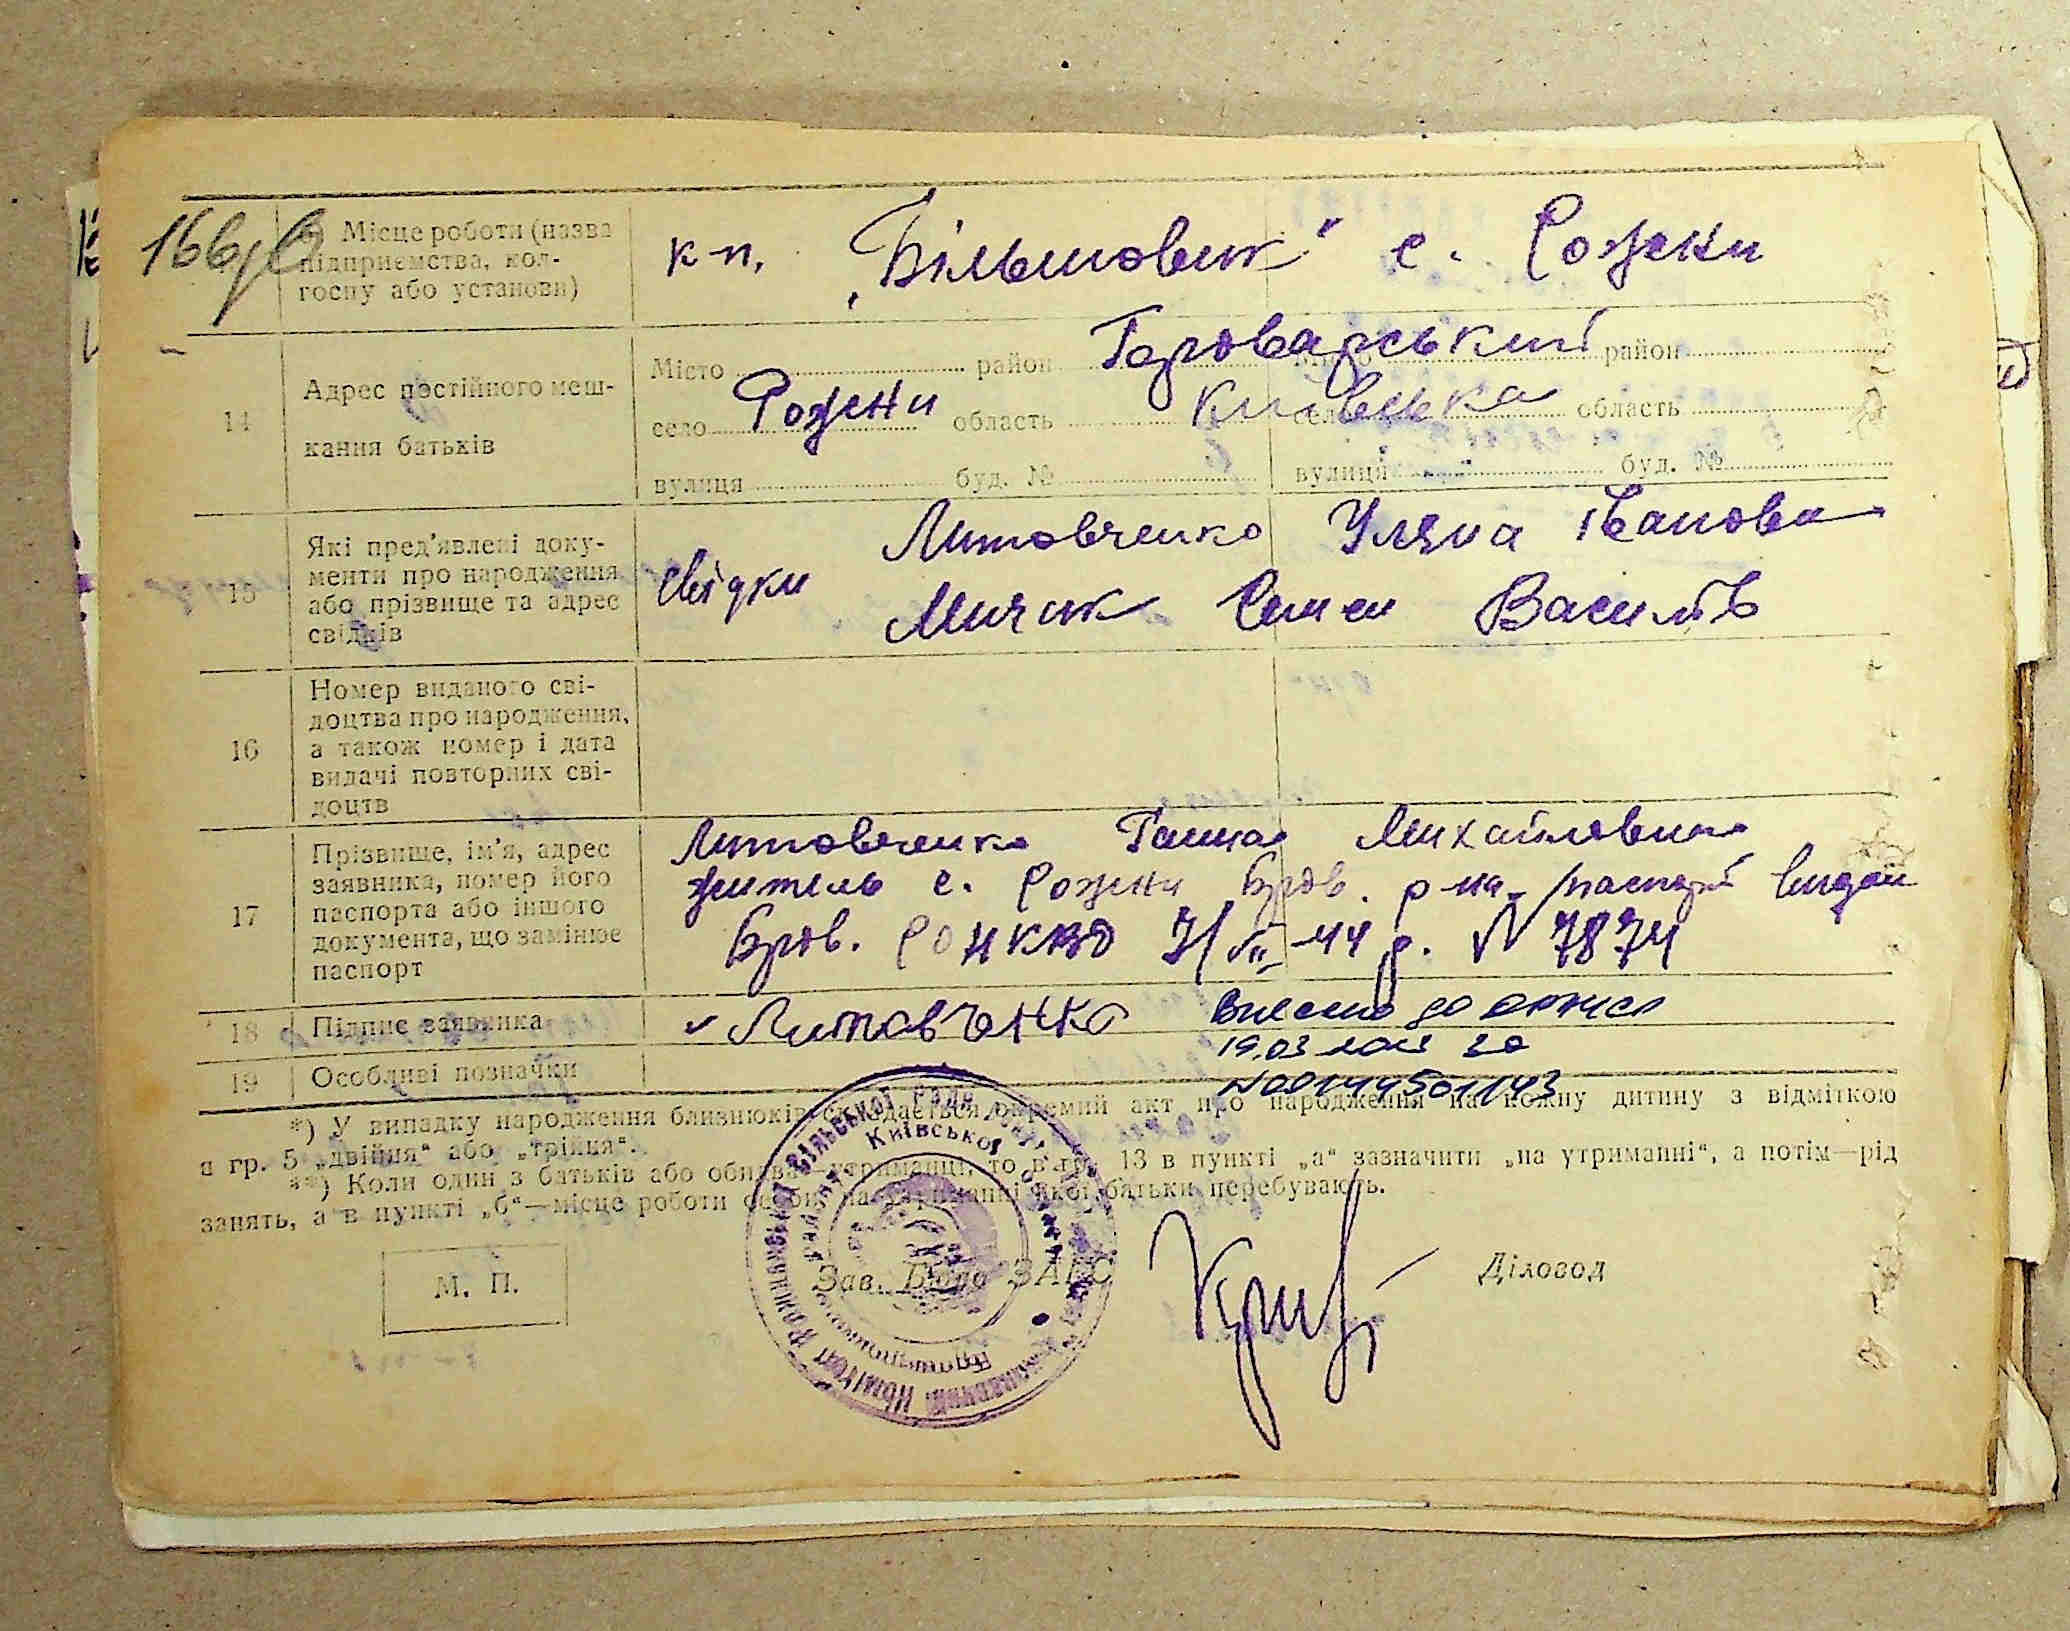 166
Місце роботи (назва підприємства, колгоспу або установи)
к-п. „Більшовик" с. Рожни
14
Адрес постійного меш-
кання батьків
Місто район Броварський район
село Рожни область Київська село область
вулиця буд. № вулиця буд. №
15
Які пред'явлені доку-
менти про народження
або прізвище та адрес
свідків
Литовченко Уляна Іванова
свідки
Мичак Семен Василів
16
Номер виданого сві-
доцтва про народження,
а також номер і дата
видачі повторних сві-
доцтв
17
Прізвище, ім'я, адрес
заявника, номер його
паспорта або іншого
документа, що замінює
паспорт
Литовченко Ганна Михайловна
житель с. Рожни Бров. р-на, паспорт видан
Бров. РОНКВД 44 р. № 7874
18
Підпис заявника
Литовченко
Внесено до
19.03 за
№00144501143
19
Особливі позначки
*) У випадку народження близнюків складається окремий акт про народження на кожну дитину з відміткою
в гр. 5 „двійня" або „трійця".
**) Коли один з батьків або обидва—утриманці, то в гр. 13 в пункті „а" зазначити „на утриманні", а потім—рід
занять, а в пункті „б"—місце роботи особи, на утриманні якої батьки перебувають.
М. П.
Зав. Бюро ЗАГС
Діловод
Виконавчий Комітет Рожнівської Сільської Ради
району Київської області